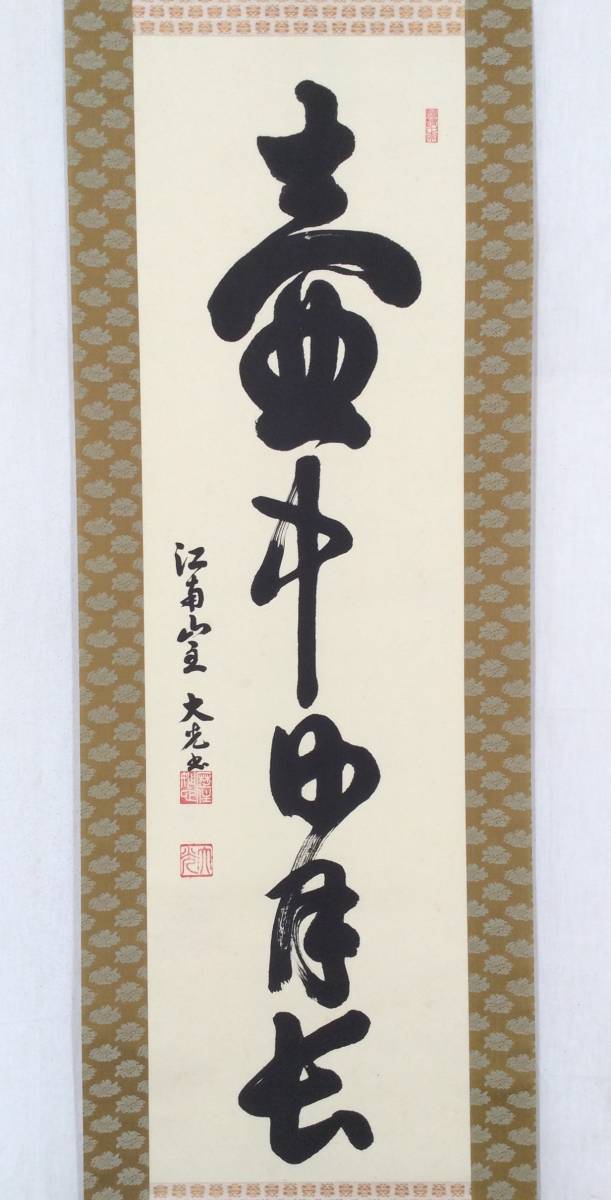 壺中日月長
江南山主 大光書